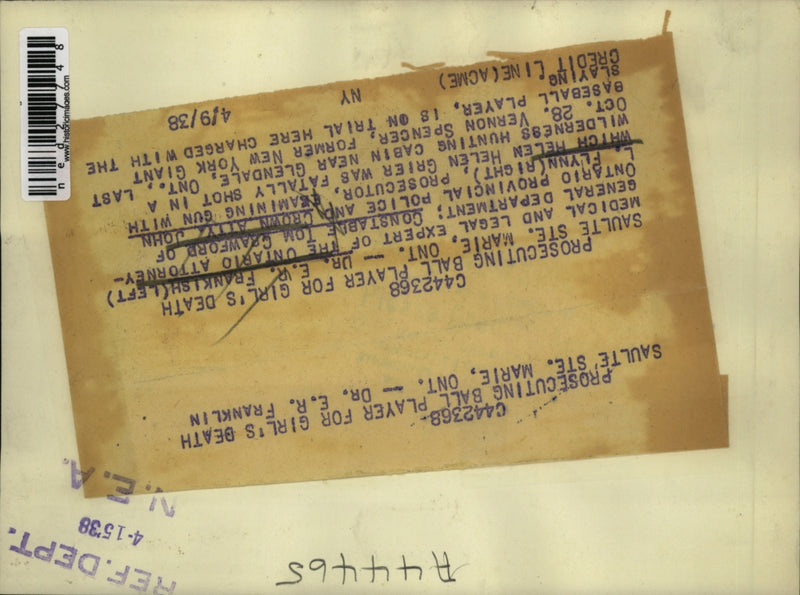 C442368
PROSECUTING BALL PLAYER FOR GIRL'S DEATH
SAULTE STE. MARIE, ONT. -- DR. E.R. FRANKLIN
C442368
PROSECUTING BALL PLAYER FOR GIRL'S DEATH
SAULTE STE. MARIE, ONT. -- DR. E.R. FRANKISH (LEFT)
MEDICAL AND LEGAL EXPERT OF THE ONTARIO ATTORNEY-
GENERAL DEPARTMENT; CONSTABLE TOM CRAWFORD OF
ONTARIO PROVINCIAL POLICE AND CROWN ATTY. JOHN
L. FLYNN(RIGHT), PROSECUTOR, EXAMINING GUN WITH
WHICH HELEN HELEN GRIER WAS FATALLY SHOT IN A
WILDERNESS HUNTING CABIN NEAR GLENDALE, ONT., LAST
OCT. 28. VERNON SPENCER, FORMER NEW YORK GIANT
BASEBALL PLAYER, IS ON TRIAL HERE CHARGED WITH THE
SLAYING.
CREDIT LINE(ACME) NY 4/9/38
REF. DEPT.
4-15'38
N.E.A.
A44465
ned27748
www.historicimages.com